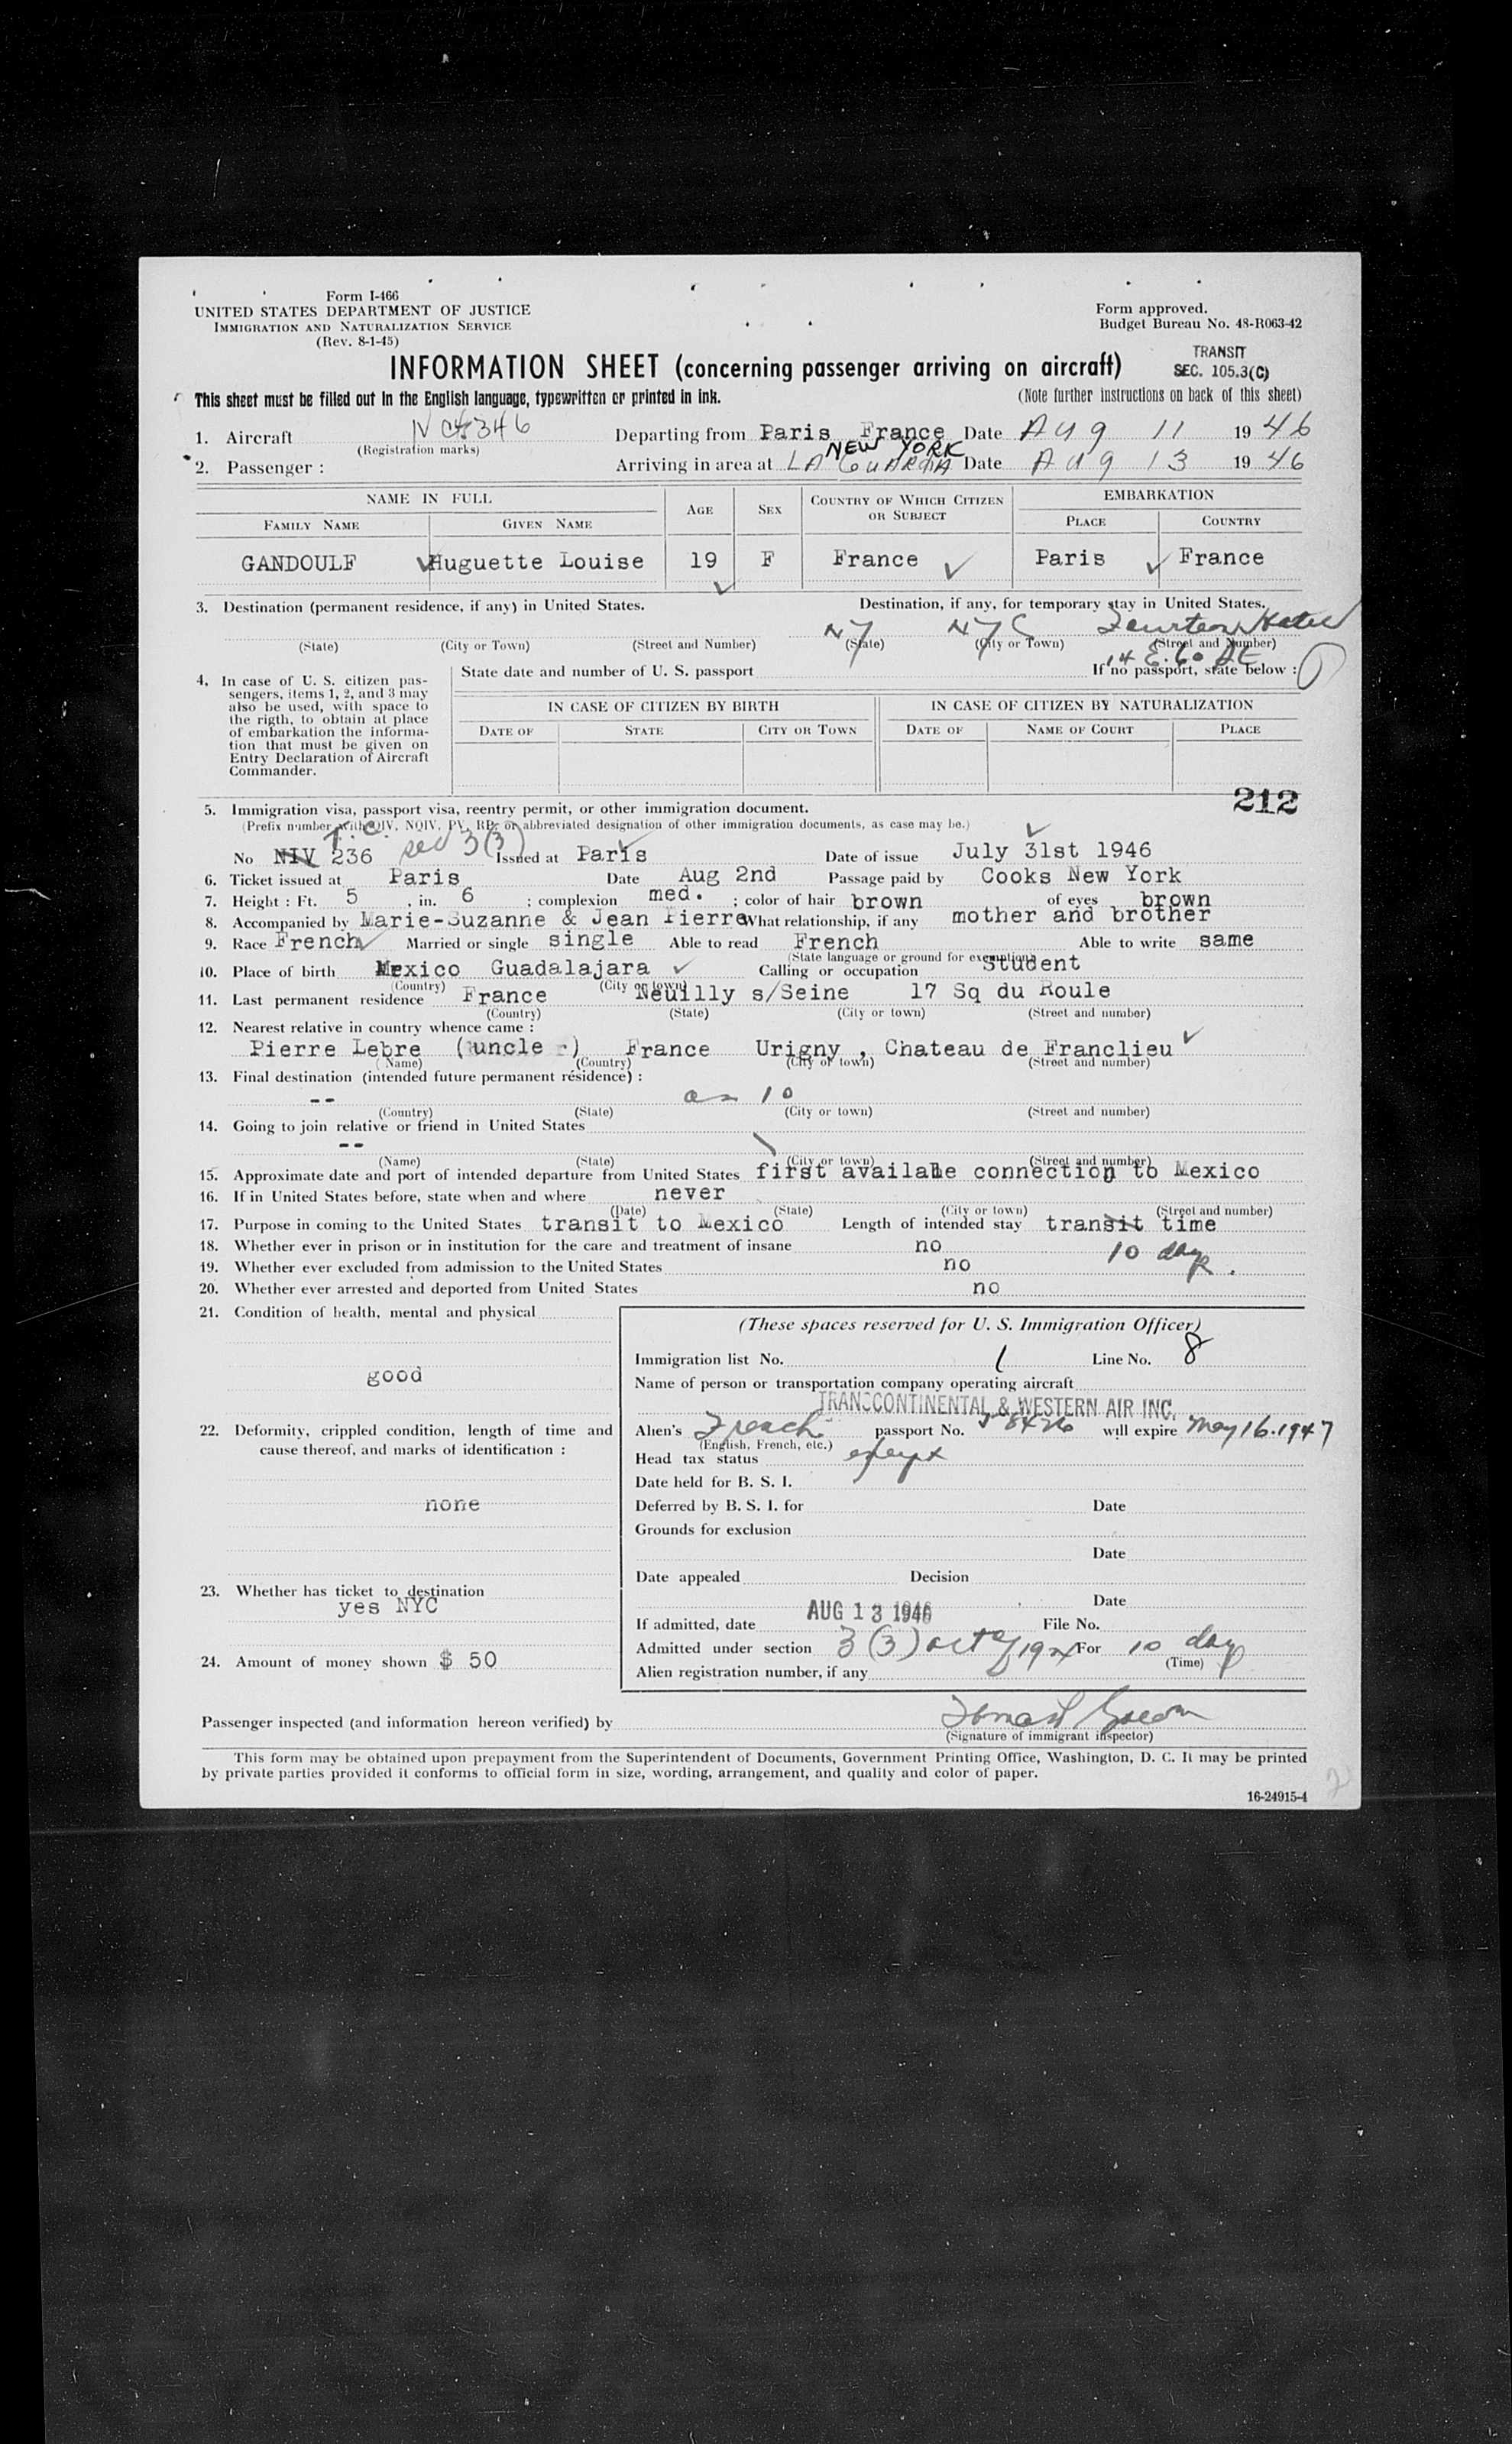 Form I-466
UNITED STATES DEPARTMENT OF JUSTICE
IMMIGRATION AND NATURALIZATION SERVICE
(Rev. 8-1-45)
Form approved.
Budget Bureau No. 43-R063-42
INFORMATION SHEET (concerning passenger arriving on aircraft)
TRANSIT
SEC. 105.3(C)
This sheet must be filled out in the English language, typewritten or printed in ink.
(Note further instructions on back of this sheet)
1. Aircraft Departing from Paris France Date Aug 11 1946
(Registration marks)
NEW YORK
2. Passenger : Arriving in area at LA GUARDIA Date Aug 13 1946
NAME IN FULL AGE SEX COUNTRY OF WHICH CITIZEN OR SUBJECT EMBARKATION
FAMILY NAME GIVEN NAME PLACE COUNTRY
GANDOULF Huguette Louise 19 F France Paris France
3. Destination (permanent residence, if any) in United States. Destination, if any, for temporary stay in United States.
NY NYC
(State) (City or Town) (Street and Number) (State) (City or Town) (Street and Number)
14 E. 60 St
4. In case of U. S. citizen pas-
sengers, items 1, 2, and 3 may
also be used, with space to
the rigth, to obtain at place
of embarkation the informa-
tion that must be given on
Entry Declaration of Aircraft
Commander.
State date and number of U. S. passport If no passport, state below :
IN CASE OF CITIZEN BY BIRTH IN CASE OF CITIZEN BY NATURALIZATION
DATE OF STATE CITY OR TOWN DATE OF NAME OF COURT PLACE
212
5. Immigration visa, passport visa, reentry permit, or other immigration document.
(Prefix number with QIV, NQIV, PV, RP, or abbreviated designation of other immigration documents, as case may be.)
T.C.
No NIV 236 sec 3(3) Issued at Paris Date of issue July 31st 1946
6. Ticket issued at Paris Date Aug 2nd Passage paid by Cooks New York
7. Height : Ft. 5 , in. 6 ; complexion med. ; color of hair brown of eyes brown
8. Accompanied by Marie-Suzanne & Jean Pierre What relationship, if any mother and brother
9. Race French Married or single single Able to read French Able to write same
(State language or ground for exemption)
10. Place of birth Mexico Guadalajara Calling or occupation Student
(Country) (City or town)
11. Last permanent residence France Neuilly s/Seine 17 Sq du Roule
(Country) (State) (City or town) (Street and number)
12. Nearest relative in country whence came :
Pierre Lebre (uncle ) France Urigny , Chateau de Franclieu
(Name) (Country) (City or town) (Street and number)
13. Final destination (intended future permanent résidence) :
-- as 10
(Country) (State) (City or town) (Street and number)
14. Going to join relative or friend in United States
--
(Name) (State) (City or town) (Street and number)
15. Approximate date and port of intended departure from United States first availabe connection to Mexico
16. If in United States before, state when and where never
(Date) (State) (City or town) (Street and number)
17. Purpose in coming to the United States transit to Mexico Length of intended stay transit time
10 days.
18. Whether ever in prison or in institution for the care and treatment of insane no
19. Whether ever excluded from admission to the United States no
20. Whether ever arrested and deported from United States no
21. Condition of health, mental and physical
good
22. Deformity, crippled condition, length of time and
cause thereof, and marks of identification :
none
23. Whether has ticket to destination
yes NYC
24. Amount of money shown $ 50
(These spaces reserved for U. S. Immigration Officer)
Immigration list No. 1 Line No. 8
Name of person or transportation company operating aircraft
TRANSCONTINENTAL & WESTERN AIR INC.
Alien's French passport No. will expire May 16.1947
(English, French, etc.)
Head tax status exempt
Date held for B. S. I.
Deferred by B. S. I. for Date
Grounds for exclusion
Date
Date appealed Decision
Date
If admitted, date AUG 13 1946 File No.
Admitted under section 3 (3) act of 1924 For 10 days
(Time)
Alien registration number, if any
Passenger inspected (and information hereon verified) by
(Signature of immigrant inspector)
This form may be obtained upon prepayment from the Superintendent of Documents, Government Printing Office, Washington, D. C. It may be printed
by private parties provided it conforms to official form in size, wording, arrangement, and quality and color of paper.
16-24915-4